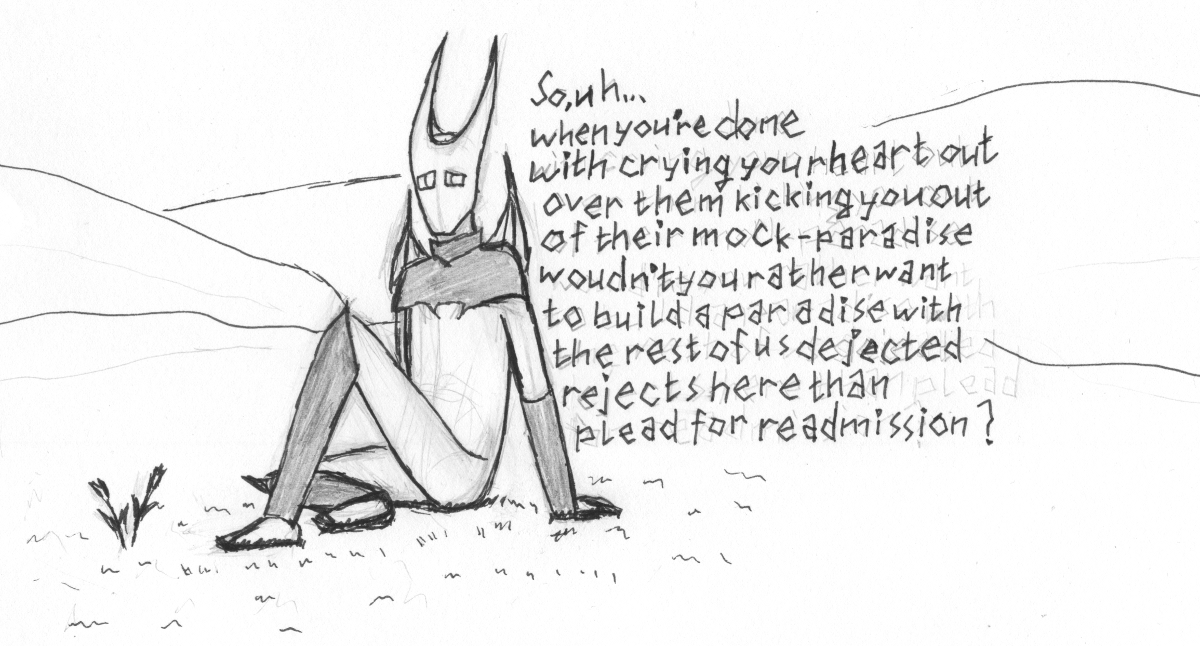 So, uh...
when you're done
with crying your heart out
over them kicking you out
of their mock-paradise
woudn't you rather want
to build a paradise with
the rest of us dejected
rejects here than
plead for readmission?